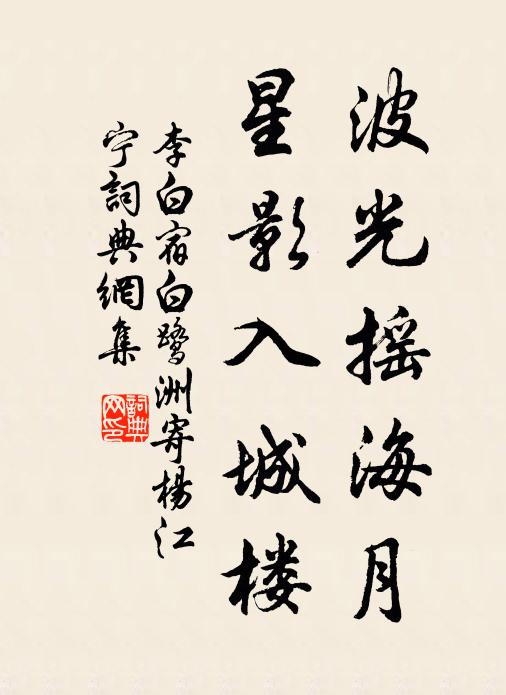 波光摇海月
星影入城楼
李白宿白鹭洲寄楊江
宁詞典網集
詞典
网印